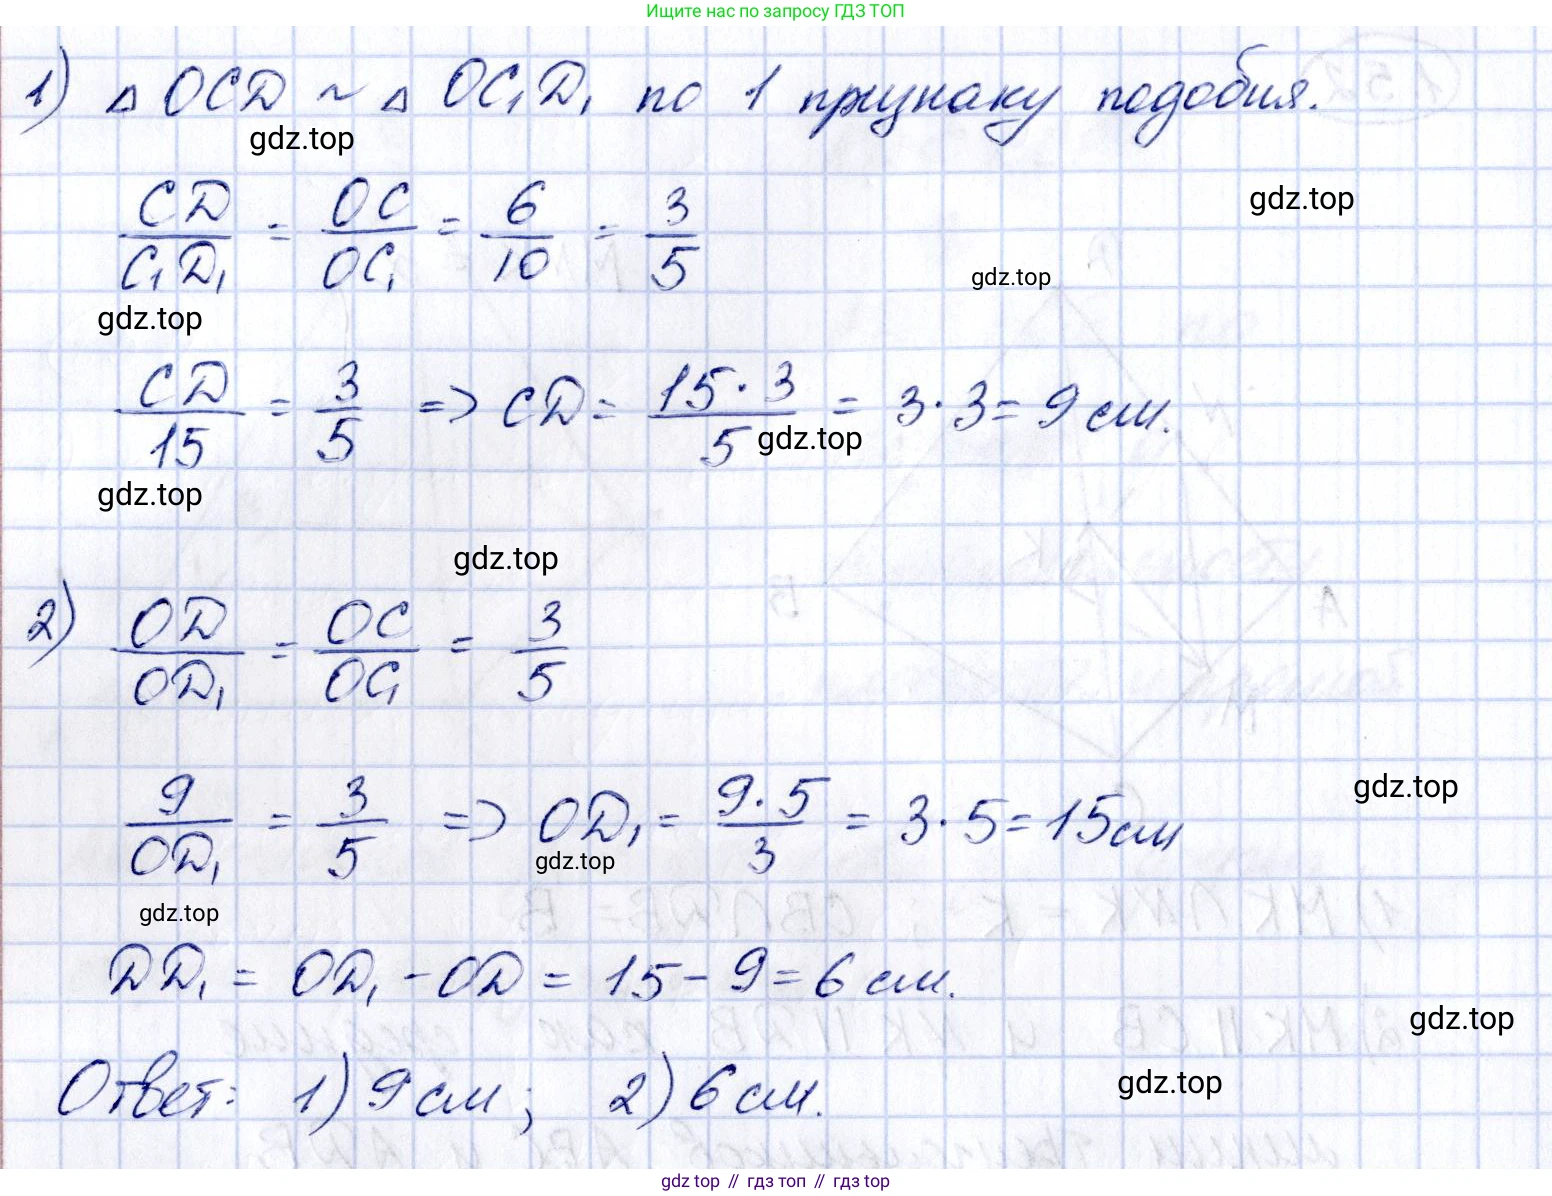 Ищите нас по запросу ГДЗ ТОП
1) △ OCD ~ △ OC₁D₁ по 1 признаку подобия.
gdz.top
CD/C₁D₁ = OC/OC₁ = 6/10 = 3/5
gdz.top
gdz.top
gdz.top
CD/15 = 3/5 => CD = 15·3/5 = 3·3 = 9 см.
gdz.top
gdz.top
gdz.top
2) OD/OD₁ = OC/OC₁ = 3/5
gdz.top
9/OD₁ = 3/5 => OD₁ = 9·5/3 = 3·5 = 15 см
gdz.top
gdz.top
DD₁ = OD₁ - OD = 15 - 9 = 6 см.
gdz.top
Ответ: 1) 9 см; 2) 6 см.
gdz.top
gdz top // гдз топ // гдз top